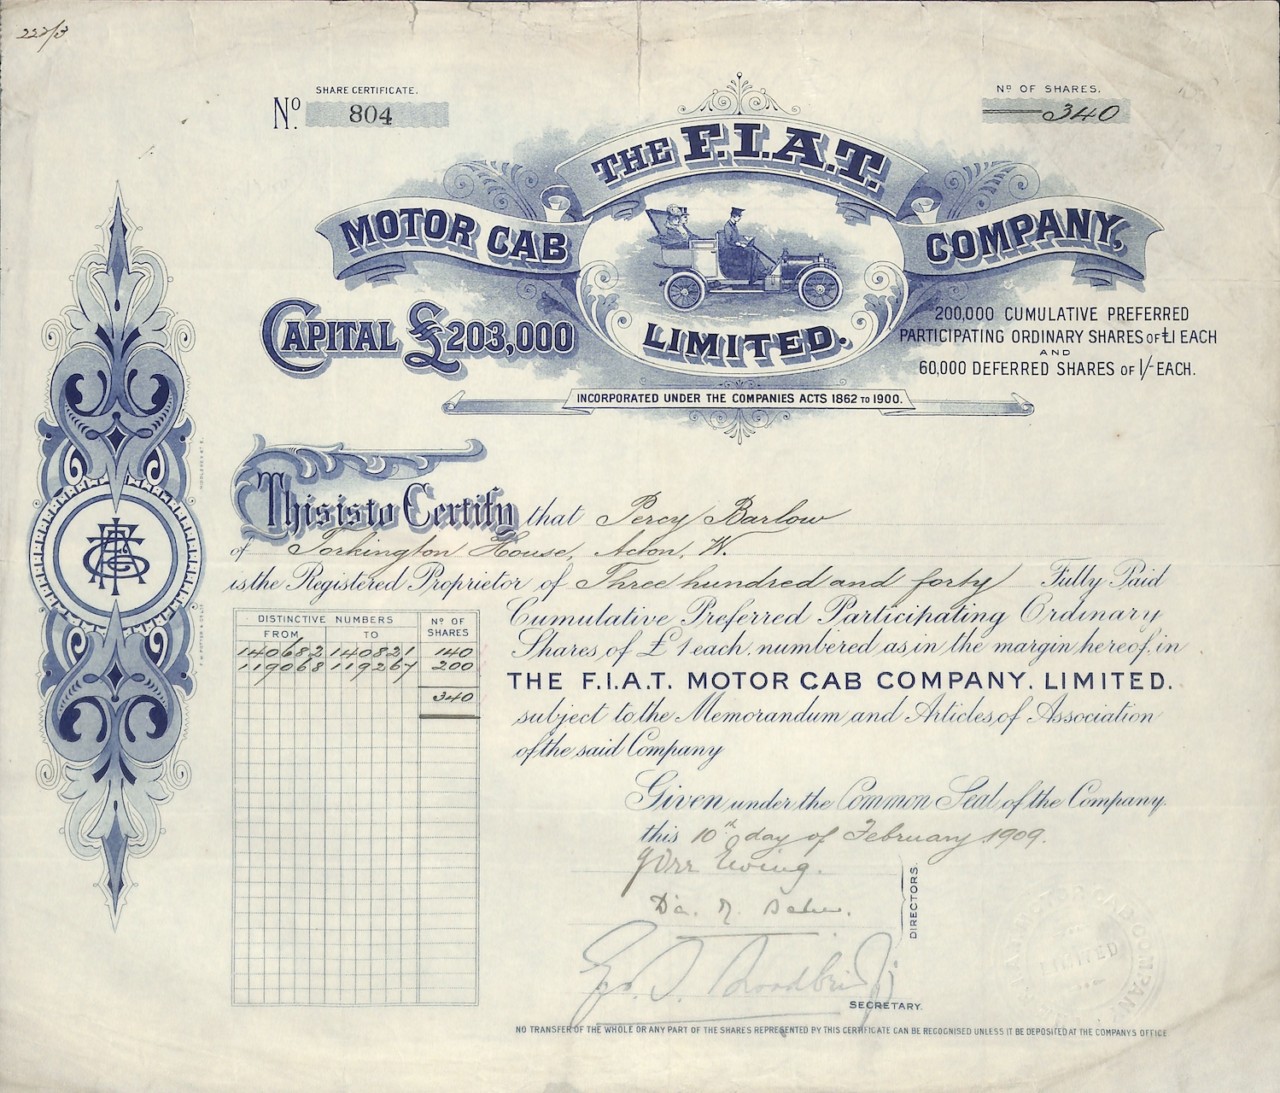 222/3
SHARE CERTIFICATE.
No. 804
No OF SHARES.
340
THE F.I.A.T.
MOTOR CAB COMPANY,
LIMITED.
CAPITAL £203,000
200,000 CUMULATIVE PREFERRED
PARTICIPATING ORDINARY SHARES OF £1 EACH
AND
60,000 DEFERRED SHARES OF 1/- EACH.
INCORPORATED UNDER THE COMPANIES ACTS 1862 TO 1900.
This is to Certify that Percy Barlow
of Torkington House, Acton, W.
is the Registered Proprietor of Three hundred and forty Fully Paid
Cumulative Preferred Participating Ordinary
Shares of £1 each, numbered as in the margin hereof, in
THE F.I.A.T. MOTOR CAB COMPANY, LIMITED.
subject to the Memorandum and Articles of Association
of the said Company
DISTINCTIVE NUMBERS
FROM TO
No OF SHARES
140682 140821 140
119068 119267 200
340
Given under the Common Seal of the Company.
this 10th day of February 1909.
J Orr Ewing.
DIRECTORS.
SECRETARY.
NO TRANSFER OF THE WHOLE OR ANY PART OF THE SHARES REPRESENTED BY THIS CERTIFICATE CAN BE RECOGNISED UNLESS IT BE DEPOSITED AT THE COMPANYS OFFICE
MOTOR CAB COMPANY
LIMITED